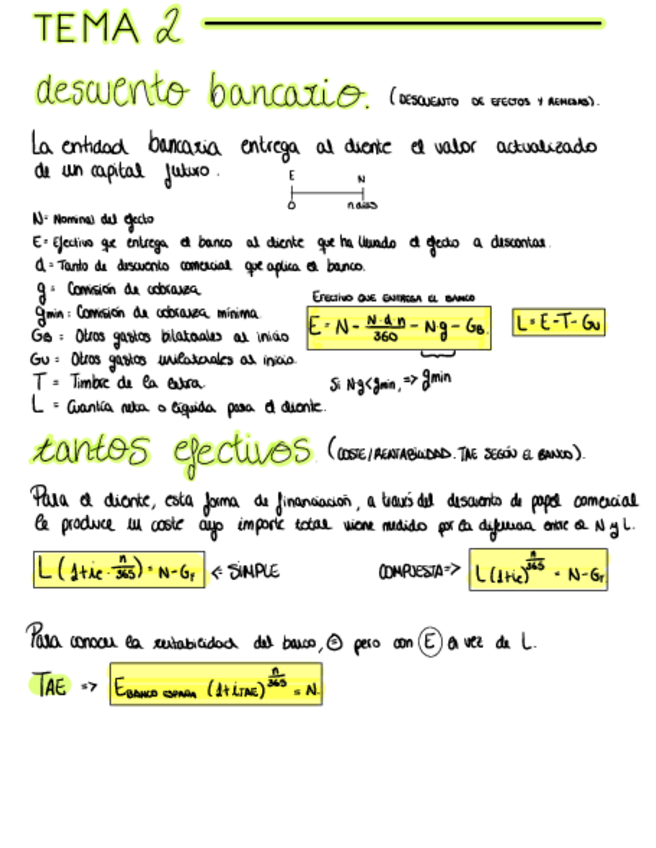 TEMA 2
descuento bancario. (DESCUENTO DE EFECTOS Y REMESAS).
La entidad bancaria entrega al cliente el valor actualizado
de un capital futuro.
E N
0 n días
N= Nominal del efecto
E= Efectivo qe entrega el banco al cliente que ha llevado el efecto a descontar.
d = Tanto de descuento comercial que aplica el banco.
g = Comisión de cobranza
gmin = Comisión de cobranza mínima
EFECTIVO QUE ENTREGA EL BANCO
GB = Otros gastos bilaterales al inicio
E = N - N·d·n/360 - N·g - GB.
L = E - T - GU
GU = Otros gastos unilaterales al inicio.
T = Timbre de la letra.
Si N·g < gmin, => gmin
L = Cuantía neta o líquida para el cliente.
tantos efectivos (COSTE/RENTABILIDAD. TAE SEGÚN EL BANCO).
Para el cliente, esta forma de financiación, a través del descuento de papel comercial
le produce un coste cuyo importe total viene medido por la diferencia entre el N y L.
L (1+ic · n/365) = N-GF <= SIMPLE COMPUESTA => L (1+ic)^n/365 = N-GF
Para conocer la rentabilidad del banco, = pero con E en vez de L.
TAE => E BANCO ESPAÑA (1+iTAE)^n/365 = N.